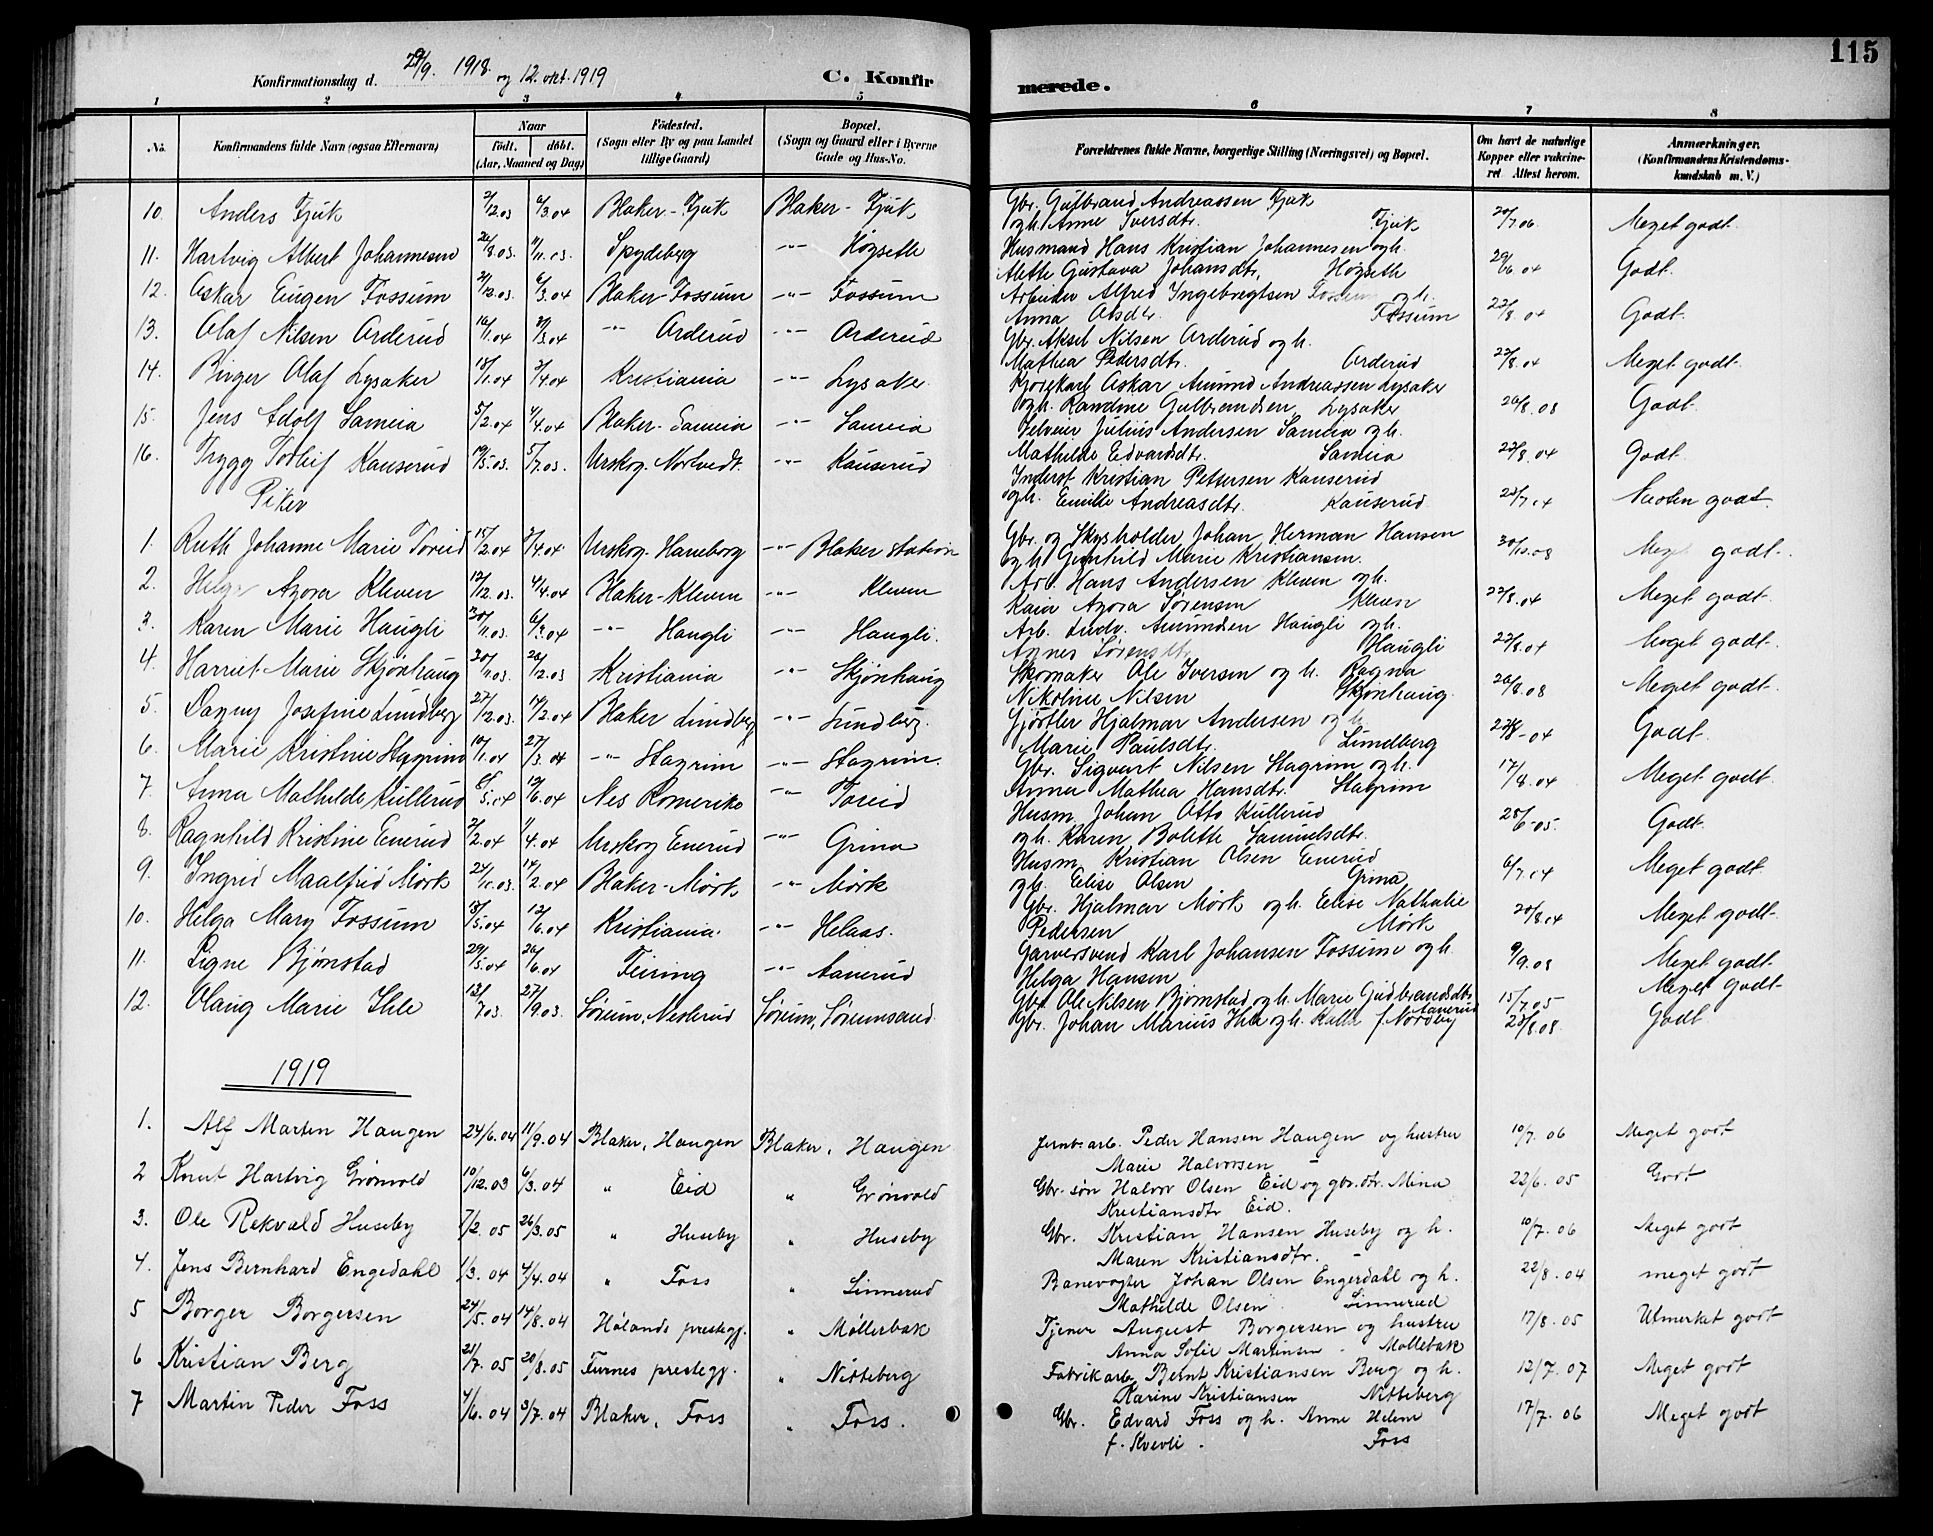 115
Konfirmationsdag d. 29/9. 1918 og 12. okt. 1919
C. Konfirmerede.
1 2 3 4 5 6 7 8
No. Konfirmandens fulde Navn (ogsaa Efternavn) Naar födt. döbt. (Aar, Maaned og Dag) Födested. (Sogn eller By og paa Landet tillige Gaard) Bopæl. (Sogn og Gaard eller i Byerne Gade og Hus-No. Forældrenes fulde Navne, borgerlige Stilling (Næringsvei) og Bopæl. Om havt de naturlige Kopper eller vakcineret Attest herom. Anmærkninger. (Konfirmandens Kristendomskundskab m. V.)
10. Anders Fjuk 2/12 03 6/3 04 Blaker - Fjuk Blaker - Fjuk Gbr. Gulbrand Andreassen Fjuk og h. Anne Iversdtr. Fjuk 20/7 06. Meget godt.
11. Hartvig Albert Johannesen 26/8.03. 11.03. Spydeberg -"- Høgseth Husmand Hans Kristian Johannesen og h. Alette Gustava Johansdtr. Høgseth 29/6.04 Godt.
12. Oskar Eugen Fossum 2/12.03. 6/3.04 Blaker-Fossum -"- Fossum Arbeider Alfred Ingebregtsen Fossum og h. Anna Olsdtr. Fossum 22/8.04 Godt.
13. Olaf Nilsen Orderud 16/1.04 27/3.04 -"- Orderud -"- Orderud Gbr. Aksel Nilsen Orderud og h. Mathea Pedersdtr. Orderud 22/8.04 Meget godt.
14. Birger Olaf Lysaker 18/1.04 3/4.04 Kristiania -"- Lysaker Kjørekarl Oskar Amund Andreassen Lysaker og h. Randine Gulbrandsen Lysaker 26/8.08 Godt.
15. Jens Adolf Sameia 5/2.04 4/4.04 Blaker-Sameia -"- Sameia Selveier Julius Andersen Sameia og h. Mathilde Edvardsdtr. Sameia 22/8.04 Godt.
16. Trygg Torleif Kauserud 19/5.03. 5/7.03. Urskog. Nortvedt. -"- Kauserud Inderst Kristian Pettersen Kauserud og h. Emilie Andreasdtr. Kauserud 23/7.04 Næsten godt.
Piker
1. Ruth Johanne Marie Toreid 15/2.04 3/4.04 Urskog. Haneborg -"- Blaker Station Gbr. og Skysholder Johan Herman Hansen og h. Gunhild Marie Kristiansen. 30/10.08 Meget godt.
2. Helga Azora Kleven 12/12.03. 4/4.04 Blaker-Kleven -"- Kleven Arb. Hans Andersen Kleven og h. Kaia Azora Sørensen Kleven 22/8.04 Meget godt.
3. Karen Marie Haugli 30/11.03. 6/3.04 -"- Haugli -"- Haugli. Arb. Ludv. Amundsen Haugli og h. Agnes Sørensdtr. Haugli 22/8.04 Meget godt.
4. Harriet Marie Skjønhaug 30/11.03. 26/12.03 Kristiania -"- Skjønhaug Skomaker Ole Iversen og h. Ragna Nikoline Nilsen Skjønhaug 26/8.08 Meget godt.
5. Dagny Josefine Lundberg 27/12.03. 14/2.04 Blaker Lundberg -"- Lundberg. Gjørtler Hjalmar Andersen og h. Marie Paulsdtr. Lundberg 22/8-04 Godt.
6. Marie Kristine Stagrim 10/1.04 27/3.04 -"- Stagrim -"- Stagrim. Gbr. Sigvart Nilsen Stagrim og h. Anna Mathea Hansdtr. Stagrim 17/8.04 Meget godt.
7. Anna Mathilde Kullerud 6/5.04 12/6.04 Nes Romerike -"- Toreid Husm. Johan Otto Kullerud og h. Karen Bolette Samuelsdtr. 25/6-05. Godt.
8. Ragnhild Kristine Enerud 2/2.04 4.04 Urskog Enerud -"- Grina Husm. Kristian Olsen Enerud og h. Elise Olsen Grina 6/7.04 Meget godt.
9. Ingrid Maalfrid Mörk 24/11.03. 14/2.04 Blaker-Mörk -"- Mörk Gbr. Hjalmar Mörk og h. Elise Nathalie Pedersen Mörk 20/8.04 Meget godt.
10. Helga Mary Fossum 13/5.04 12/6.04 Kristiania. -"- Helaas. Garversvend Karl Johansen Fossum og h. Helga Hansen 9/9.08 Meget godt.
11. Signe Bjørnstad 29/5.04 26/6.04 Feiring -"- Aanerud Gbr. Ole Nilsen Bjørnstad og h. Marie Gudbrandsdtr. Aanerud 15/7.05 Meget godt.
12. Olaug Marie Ihle 13/7.03. 27/9.03. Sørum, Nesterud Sørum, Sørumsand Gbr. Johan Marius Ihle og h. Kalla f. Nordby 28/8.08. Godt
1919
1. Alf Martin Haugen 24/6.04 11/9.04 Blaker, Haugen Blaker, Haugen Jernb.arb. Peder Hansen Haugen og hustru Marie Halvorsen 10/7.06 Meget godt
2 Knut Hartvig Grönvold 10/12.03 6/3.04 " Eid " Grönvold Gbr-søn Halvor Olsen Eid og gbr.dtr. Mina Kristiansdtr Eid. 22/6.05 Godt
3. Ole Rekvald Huseby 7/2.05 26/3.05 " Huseby " Huseby Gbr. Kristian Hansen Huseby og h. Maren Kristiansdtr. 10/7.06 Meget godt
4. Jens Bernhard Engedahl 1/3.04 4/4.04 " Foss " Linnerud Banevogter Johan Olsen Engerdahl og h. Mathilde Olsen Linnerud 22/8.04 meget godt
5 Borger Borgersen 24/5.04 14/8.04 Hölands prestegj. " Möllerbak Tjener August Borgersen og hustru Anna Sofie Martinsen - Möllebak 17/8.05 Utmerket godt
6 Kristian Berg 21/7.05 20/8.05 Furnes prestegj. " Nitteberg Fabrikarb. Bernt Kristiansen Berg og h. Karine Kristiansen Nitteberg 12/7.07 Meget godt
7 Martin Peder Foss 4/6.04 3/7.04 Blaker, Foss " Foss. Gbr. Edvard Foss og h. Anne Helene f. Kvevli. Foss 17/7.06 Meget godt